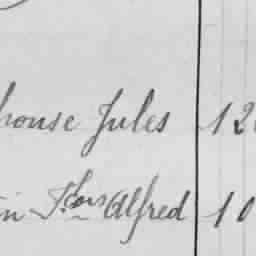 house Jules 12
in F.çois Alfred 10